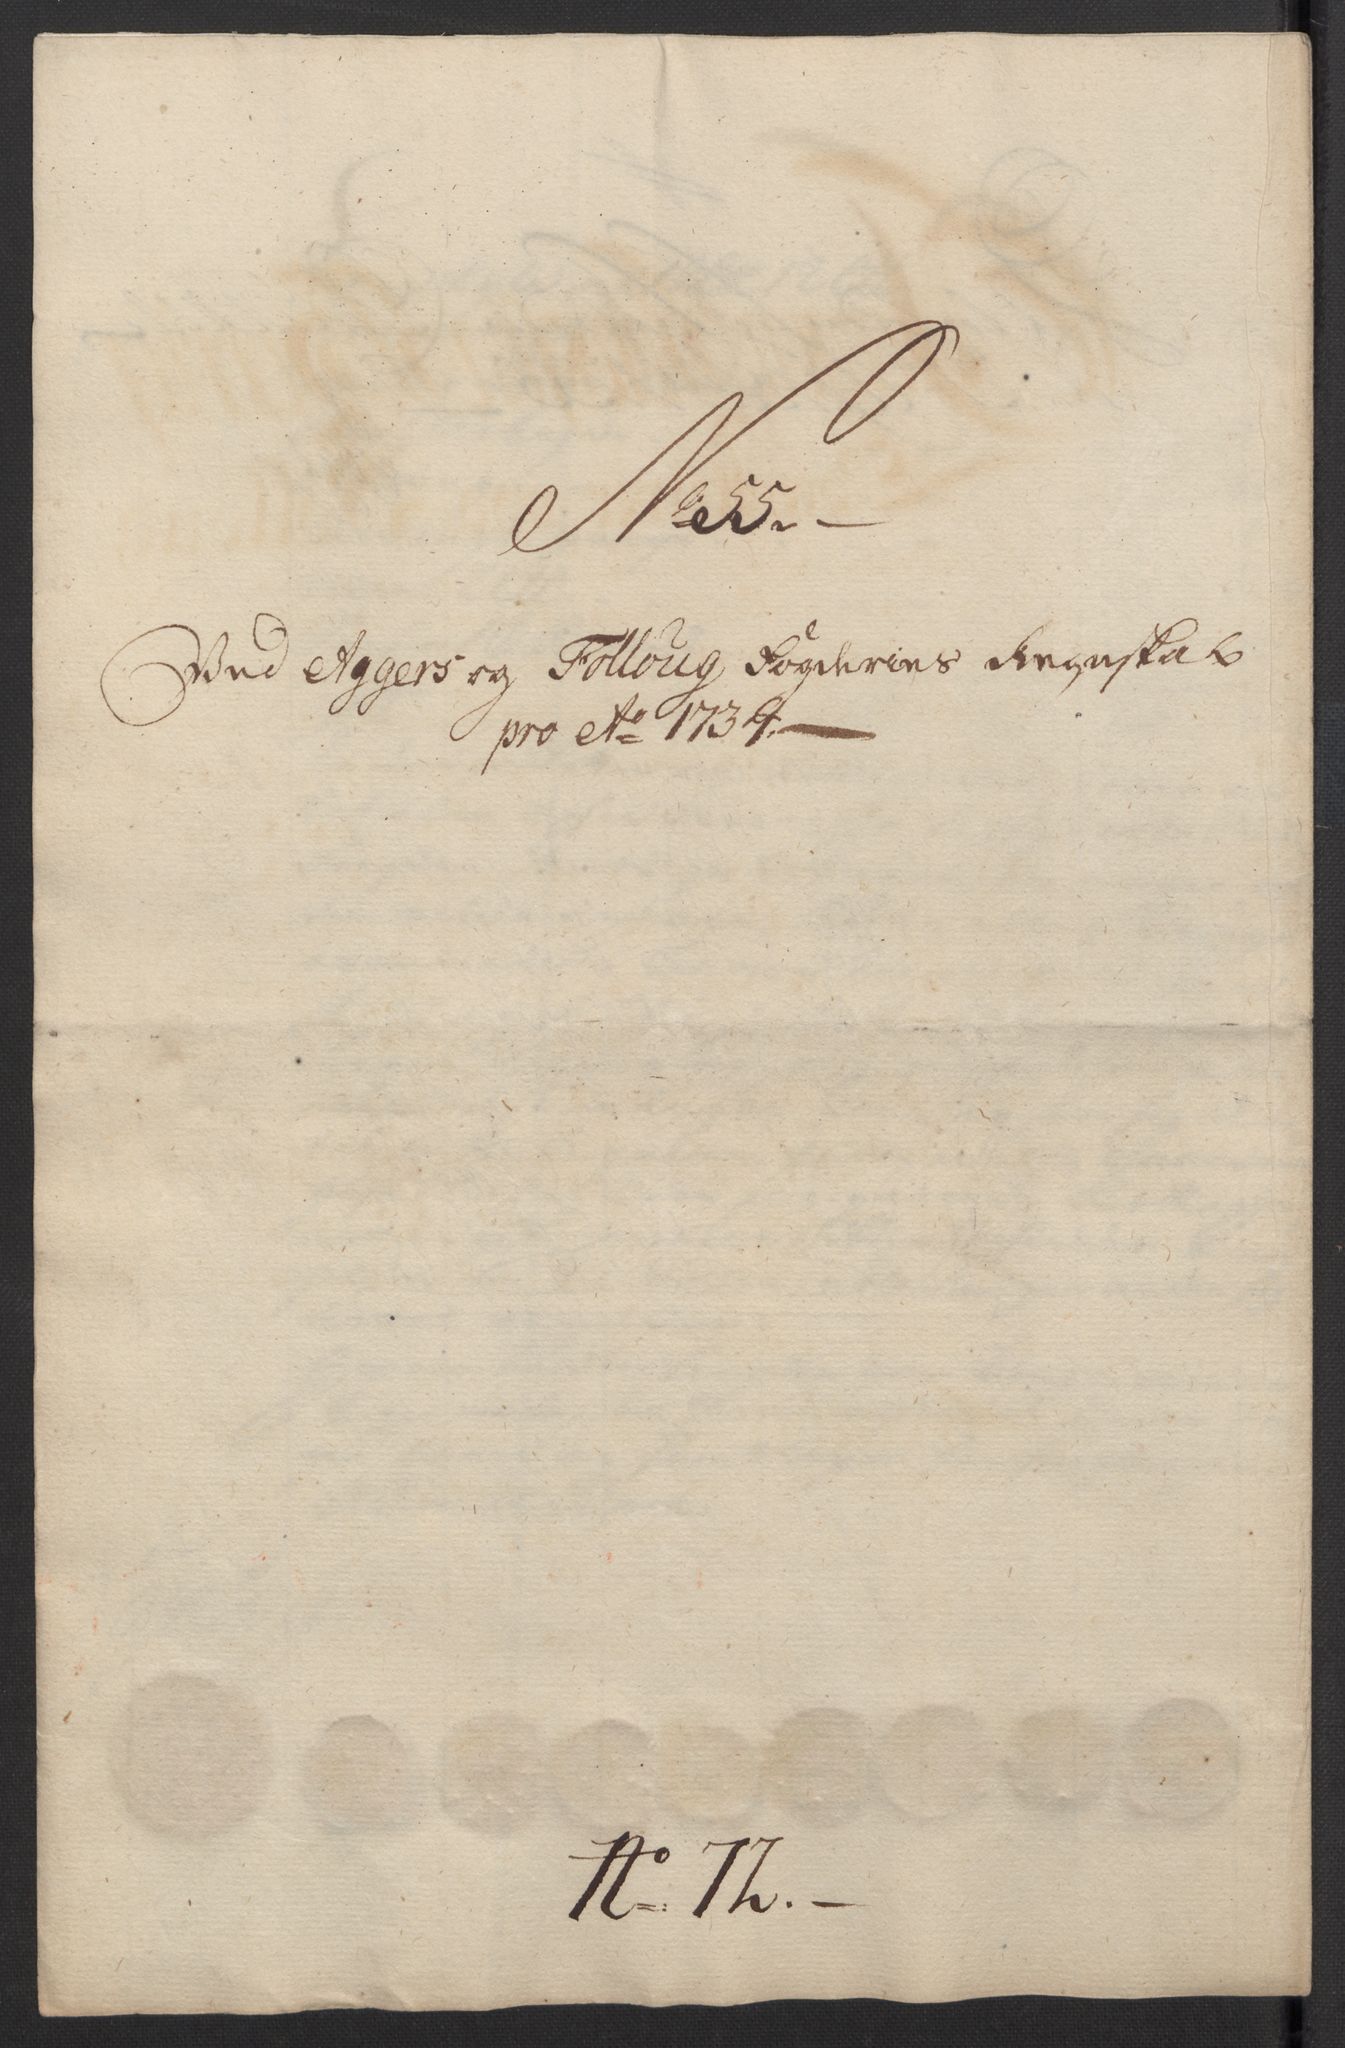 No 55.
Ved Aggers og Folloug Fogderies Regnskab
pro Ao 1734.
No 72.